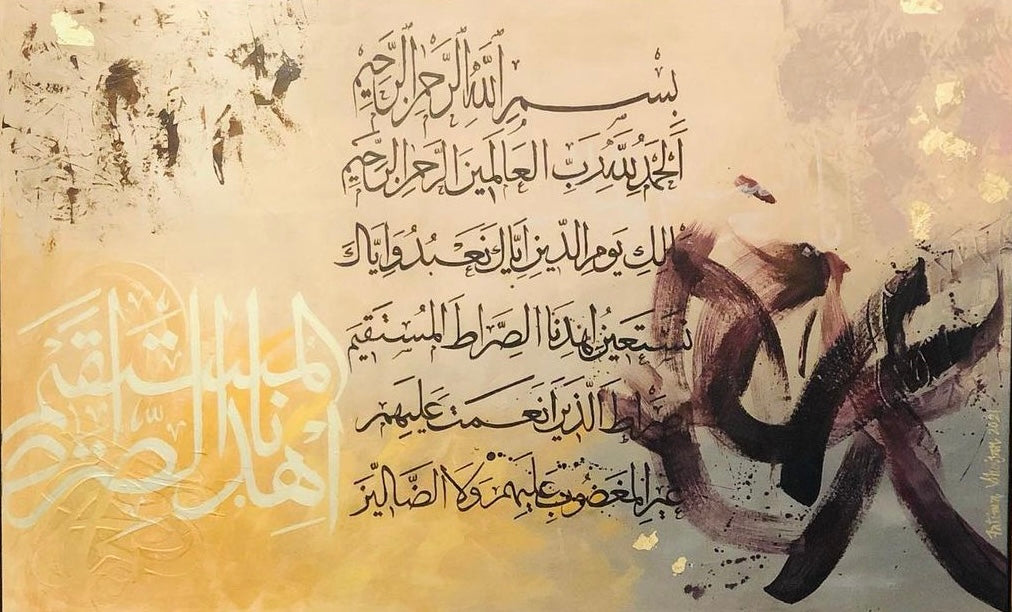 بِسْمِ اللّٰهِ الرَّحْمٰنِ الرَّحِيْمِ
اَلْحَمْدُ لِلّٰهِ رَبِّ الْعَالَمِيْنَ الرَّحْمٰنِ الرَّحِيْمِ
مَالِكِ يَوْمِ الدِّيْنِ اِيَّاكَ نَعْبُدُ وَاِيَّاكَ
نَسْتَعِيْنُ اِهْدِنَا الصِّرَاطَ الْمُسْتَقِيْمَ
صِرَاطَ الَّذِيْنَ اَنْعَمْتَ عَلَيْهِمْ
غَيْرِ الْمَغْضُوْبِ عَلَيْهِمْ وَلَا الضَّالِّيْنَ
اهدنا الصراط المستقيم
2021